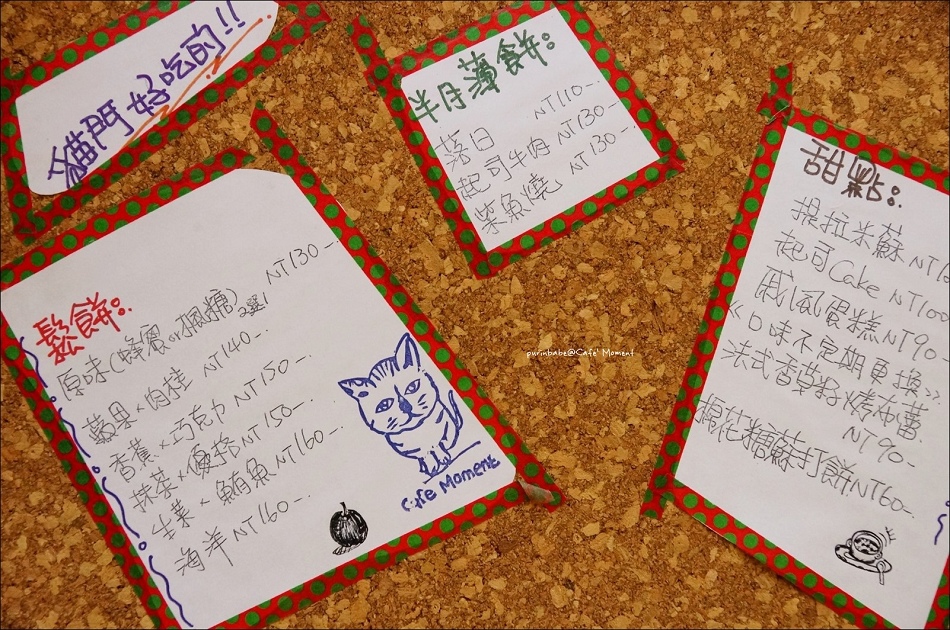 貓門好吃的!!
半月薄餅:
落日 NT110-.
起司牛肉 NT130-.
柴魚燒 NT130-.
鬆餅:
原味(蜂蜜or楓糖) 2選1 NT130-.
蘋果×肉桂 NT140-.
香蕉×巧克力 NT150-.
抹茶×優格 NT150-.
生菜×鮪魚 NT160-.
海洋 NT160-.
Cafe Moment
purinbabe@Cafe' Moment
甜點:
提拉米蘇 NT
起司Cake NT100
戚風蛋糕 NT90-
《口味不定期更換》
法式香草籽烤布蕾
NT90-
棉花糖蘇打餅 NT60-.